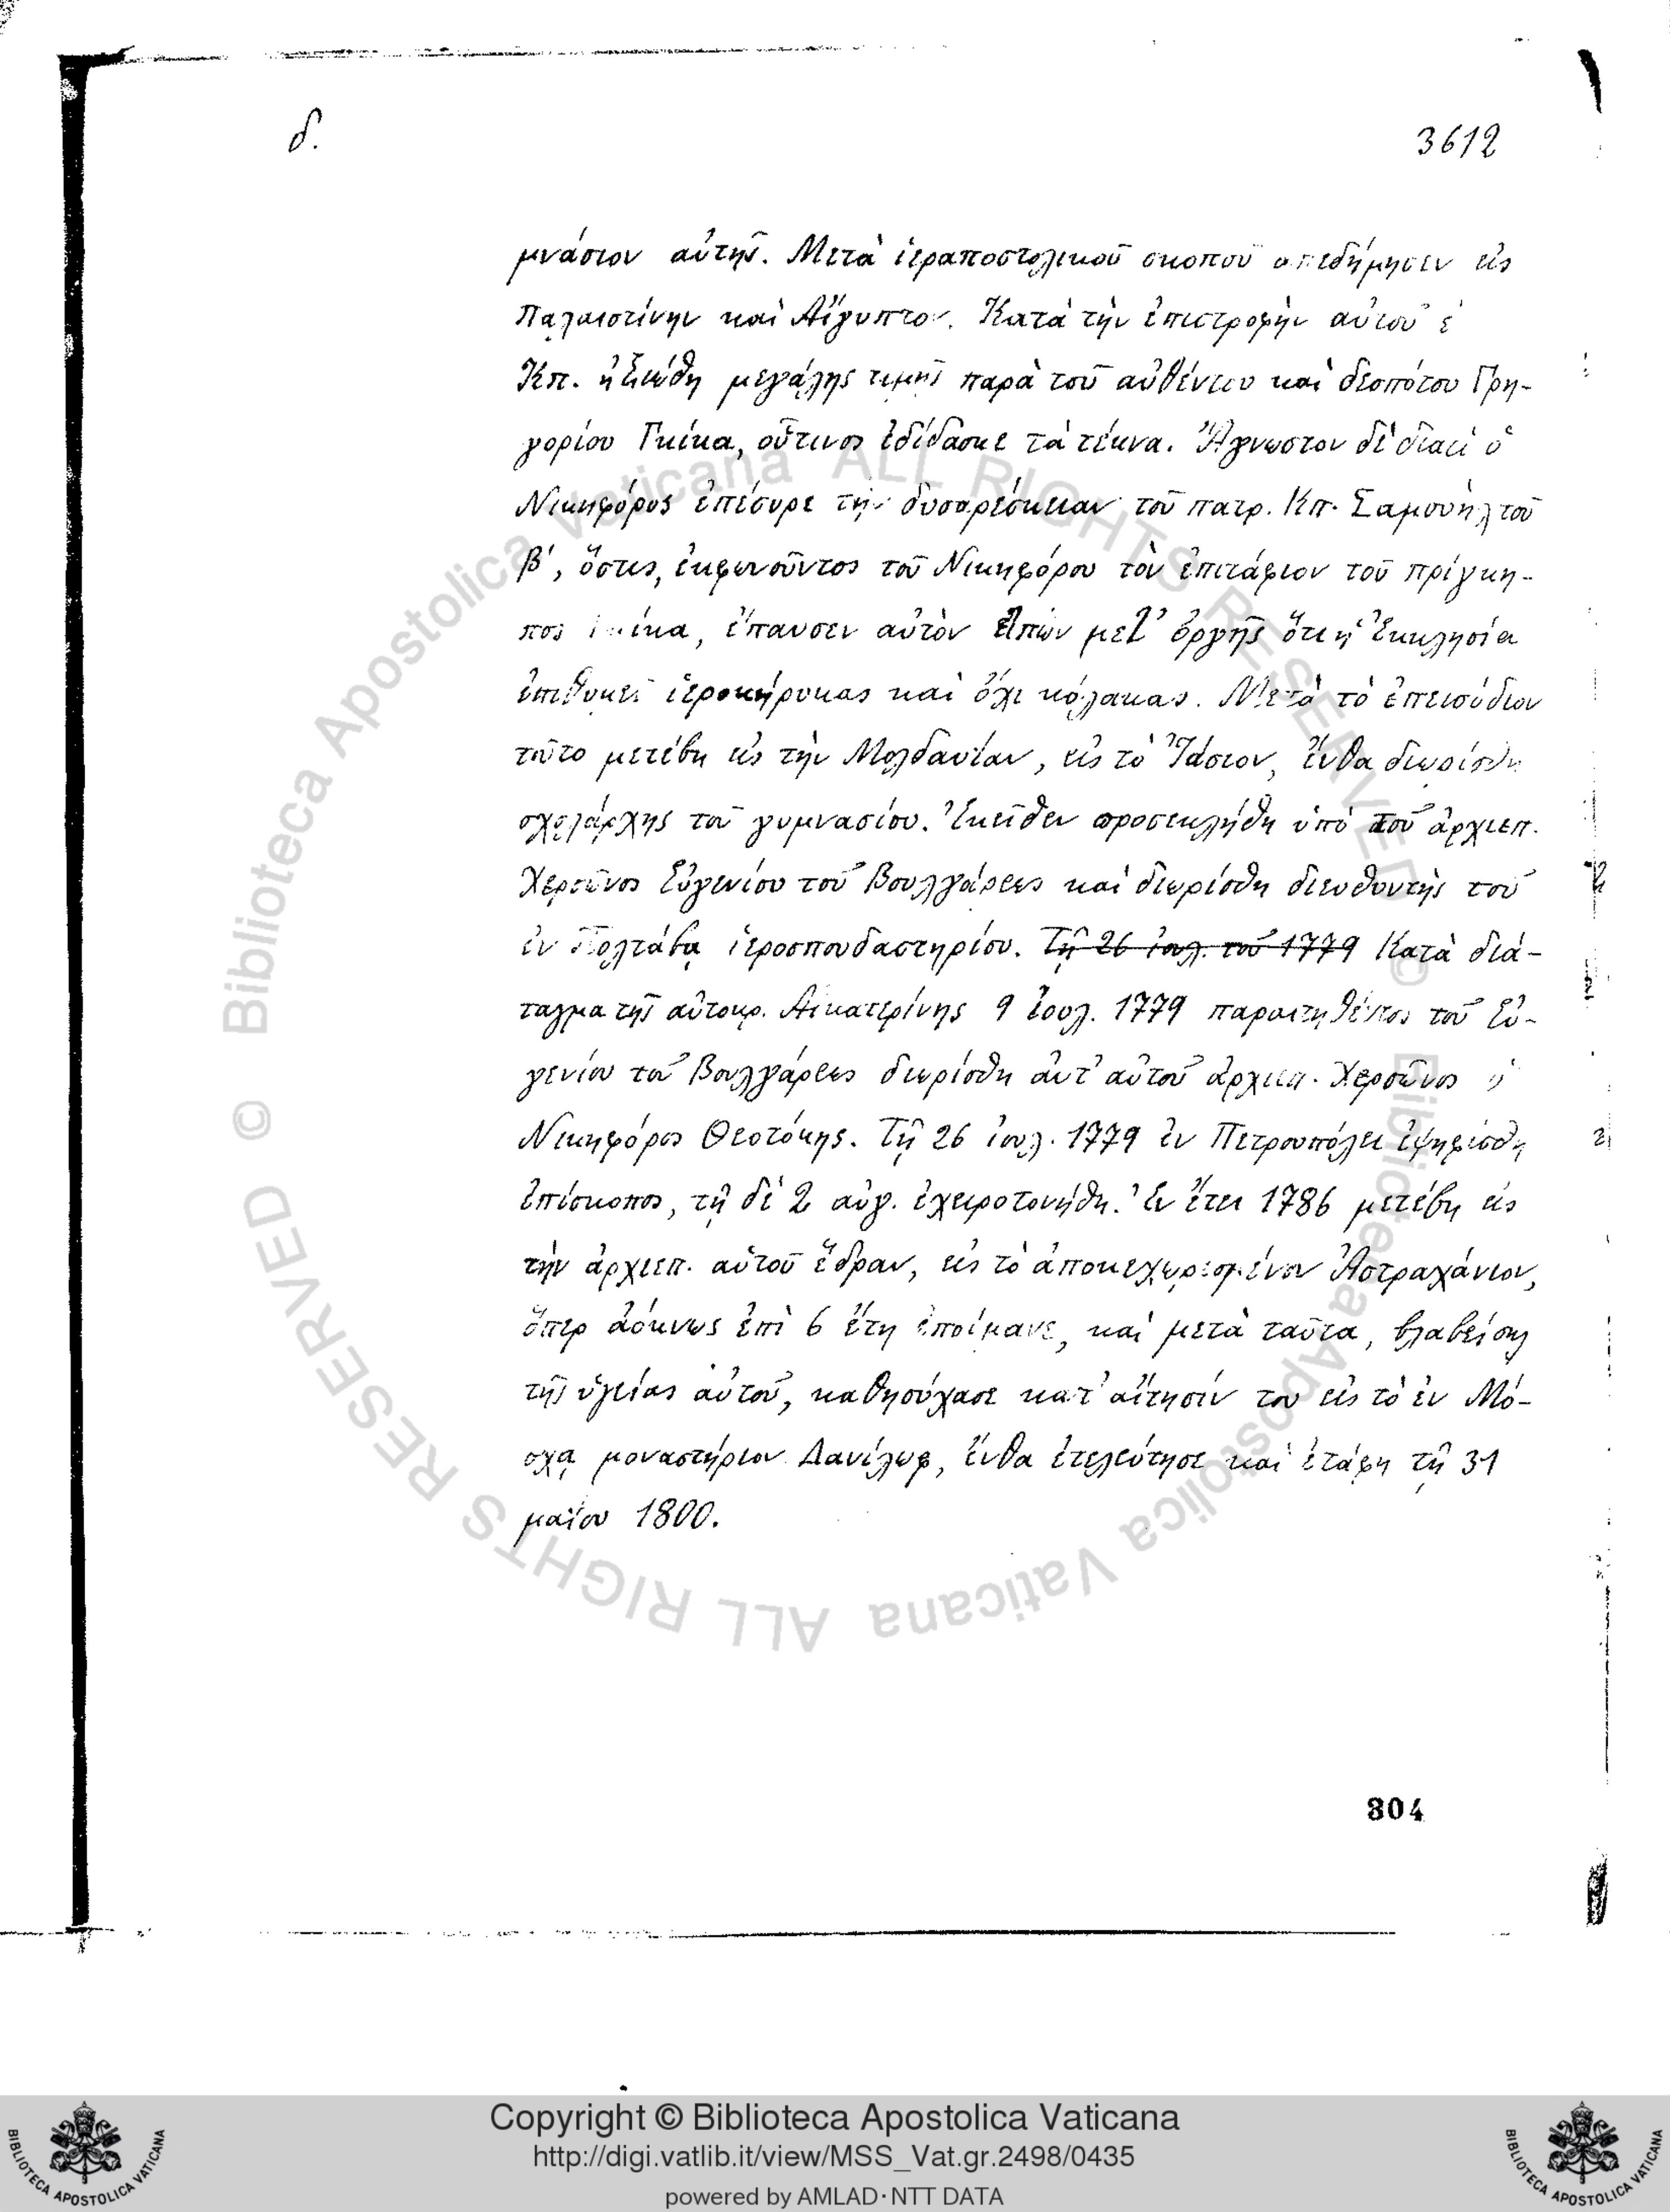 δ.
3612
μνάσιον αὐτῆς. Μετὰ ἱεραποστολικοῦ σκοποῦ ἀπεδήμησεν εἰς
Παλαιστίνην καὶ Αἴγυπτον. Κατὰ τὴν ἐπιστροφὴν αὐτοῦ
Κπ. ἠξιώθη μεγάλης τιμῆς παρὰ τοῦ αὐθέντου καὶ δεσπότου Γρη-
γορίου Γκίκα, οὗτινος ἐδίδασκε τὰ τέκνα. Ἄγνωστον δὲ διατί ὁ
Νικηφόρος ἐπέσυρε τὴν δυσαρέσκειαν τοῦ πατρ. Κπ. Σαμουὴλ τοῦ
β', ὅστις, ἐκφωνοῦντος τοῦ Νικηφόρου τὸν ἐπιτάφιον τοῦ πρίγκη-
πος Γκίκα, ἔπαυσεν αὐτὸν εἰπὼν μετ' ὀργῆς ὅτι ἡ Ἐκκλησία
ἐπιθυμεῖ ἱεροκήρυκας καὶ ὄχι κόλακας. Μετὰ τὸ ἐπεισόδιον
τοῦτο μετέβη εἰς τὴν Μολδαυΐαν, εἰς τὸ Ἰάσιον, ἔνθα διωρίσθη
σχολάρχης τοῦ γυμνασίου. Ἐκεῖθεν προσεκλήθη ὑπὸ τοῦ ἀρχιεπ.
Χερσῶνος Εὐγενίου τοῦ Βουλγάρεως καὶ διωρίσθη διευθυντὴς τοῦ
ἐν Πολτάβᾳ ἱεροσπουδαστηρίου. Τῇ 26 ἰουλ. τοῦ 1779 Κατὰ διά-
ταγμα τῆς αὐτοκρ. Αἰκατερίνης 9 ἰουλ. 1779 παραιτηθέντος τοῦ Εὐ-
γενίου τοῦ Βουλγάρεως διωρίσθη ἀντ' αὐτοῦ ἀρχιεπ. Χερσῶνος ὁ
Νικηφόρος Θεοτόκης. Τῇ 26 ἰουλ. 1779 ἐν Πετρουπόλει ἐψηφίσθη
ἐπίσκοπος, τῇ δὲ 2 αὐγ. ἐχειροτονήθη. Ἐν ἔτει 1786 μετέβη εἰς
τὴν ἀρχιεπ. αὐτοῦ ἕδραν, εἰς τὸ ἀποκεχωρισμένον Ἀστραχάνιον,
ὅπερ ἀόκνως ἐπὶ 6 ἔτη ἐποίμανε, καὶ μετὰ ταῦτα, βλαβείσης
τῆς ὑγείας αὐτοῦ, καθησύχασε κατ' αἴτησίν του εἰς τὸ ἐν Μό-
σχᾳ μοναστήριον Δανίλωφ, ἔνθα ἐτελεύτησε καὶ ἐτάφη τῇ 31
μαΐου 1800.
304
© Biblioteca Apostolica Vaticana ALL RIGHTS RESERVED © Biblioteca Apostolica Vaticana ALL RIGHTS RESERVED
Copyright © Biblioteca Apostolica Vaticana
http://digi.vatlib.it/view/MSS_Vat.gr.2498/0435
powered by AMLAD·NTT DATA
BIBLIOTECA APOSTOLICA VATICANA
BIBLIOTECA APOSTOLICA VATICANA